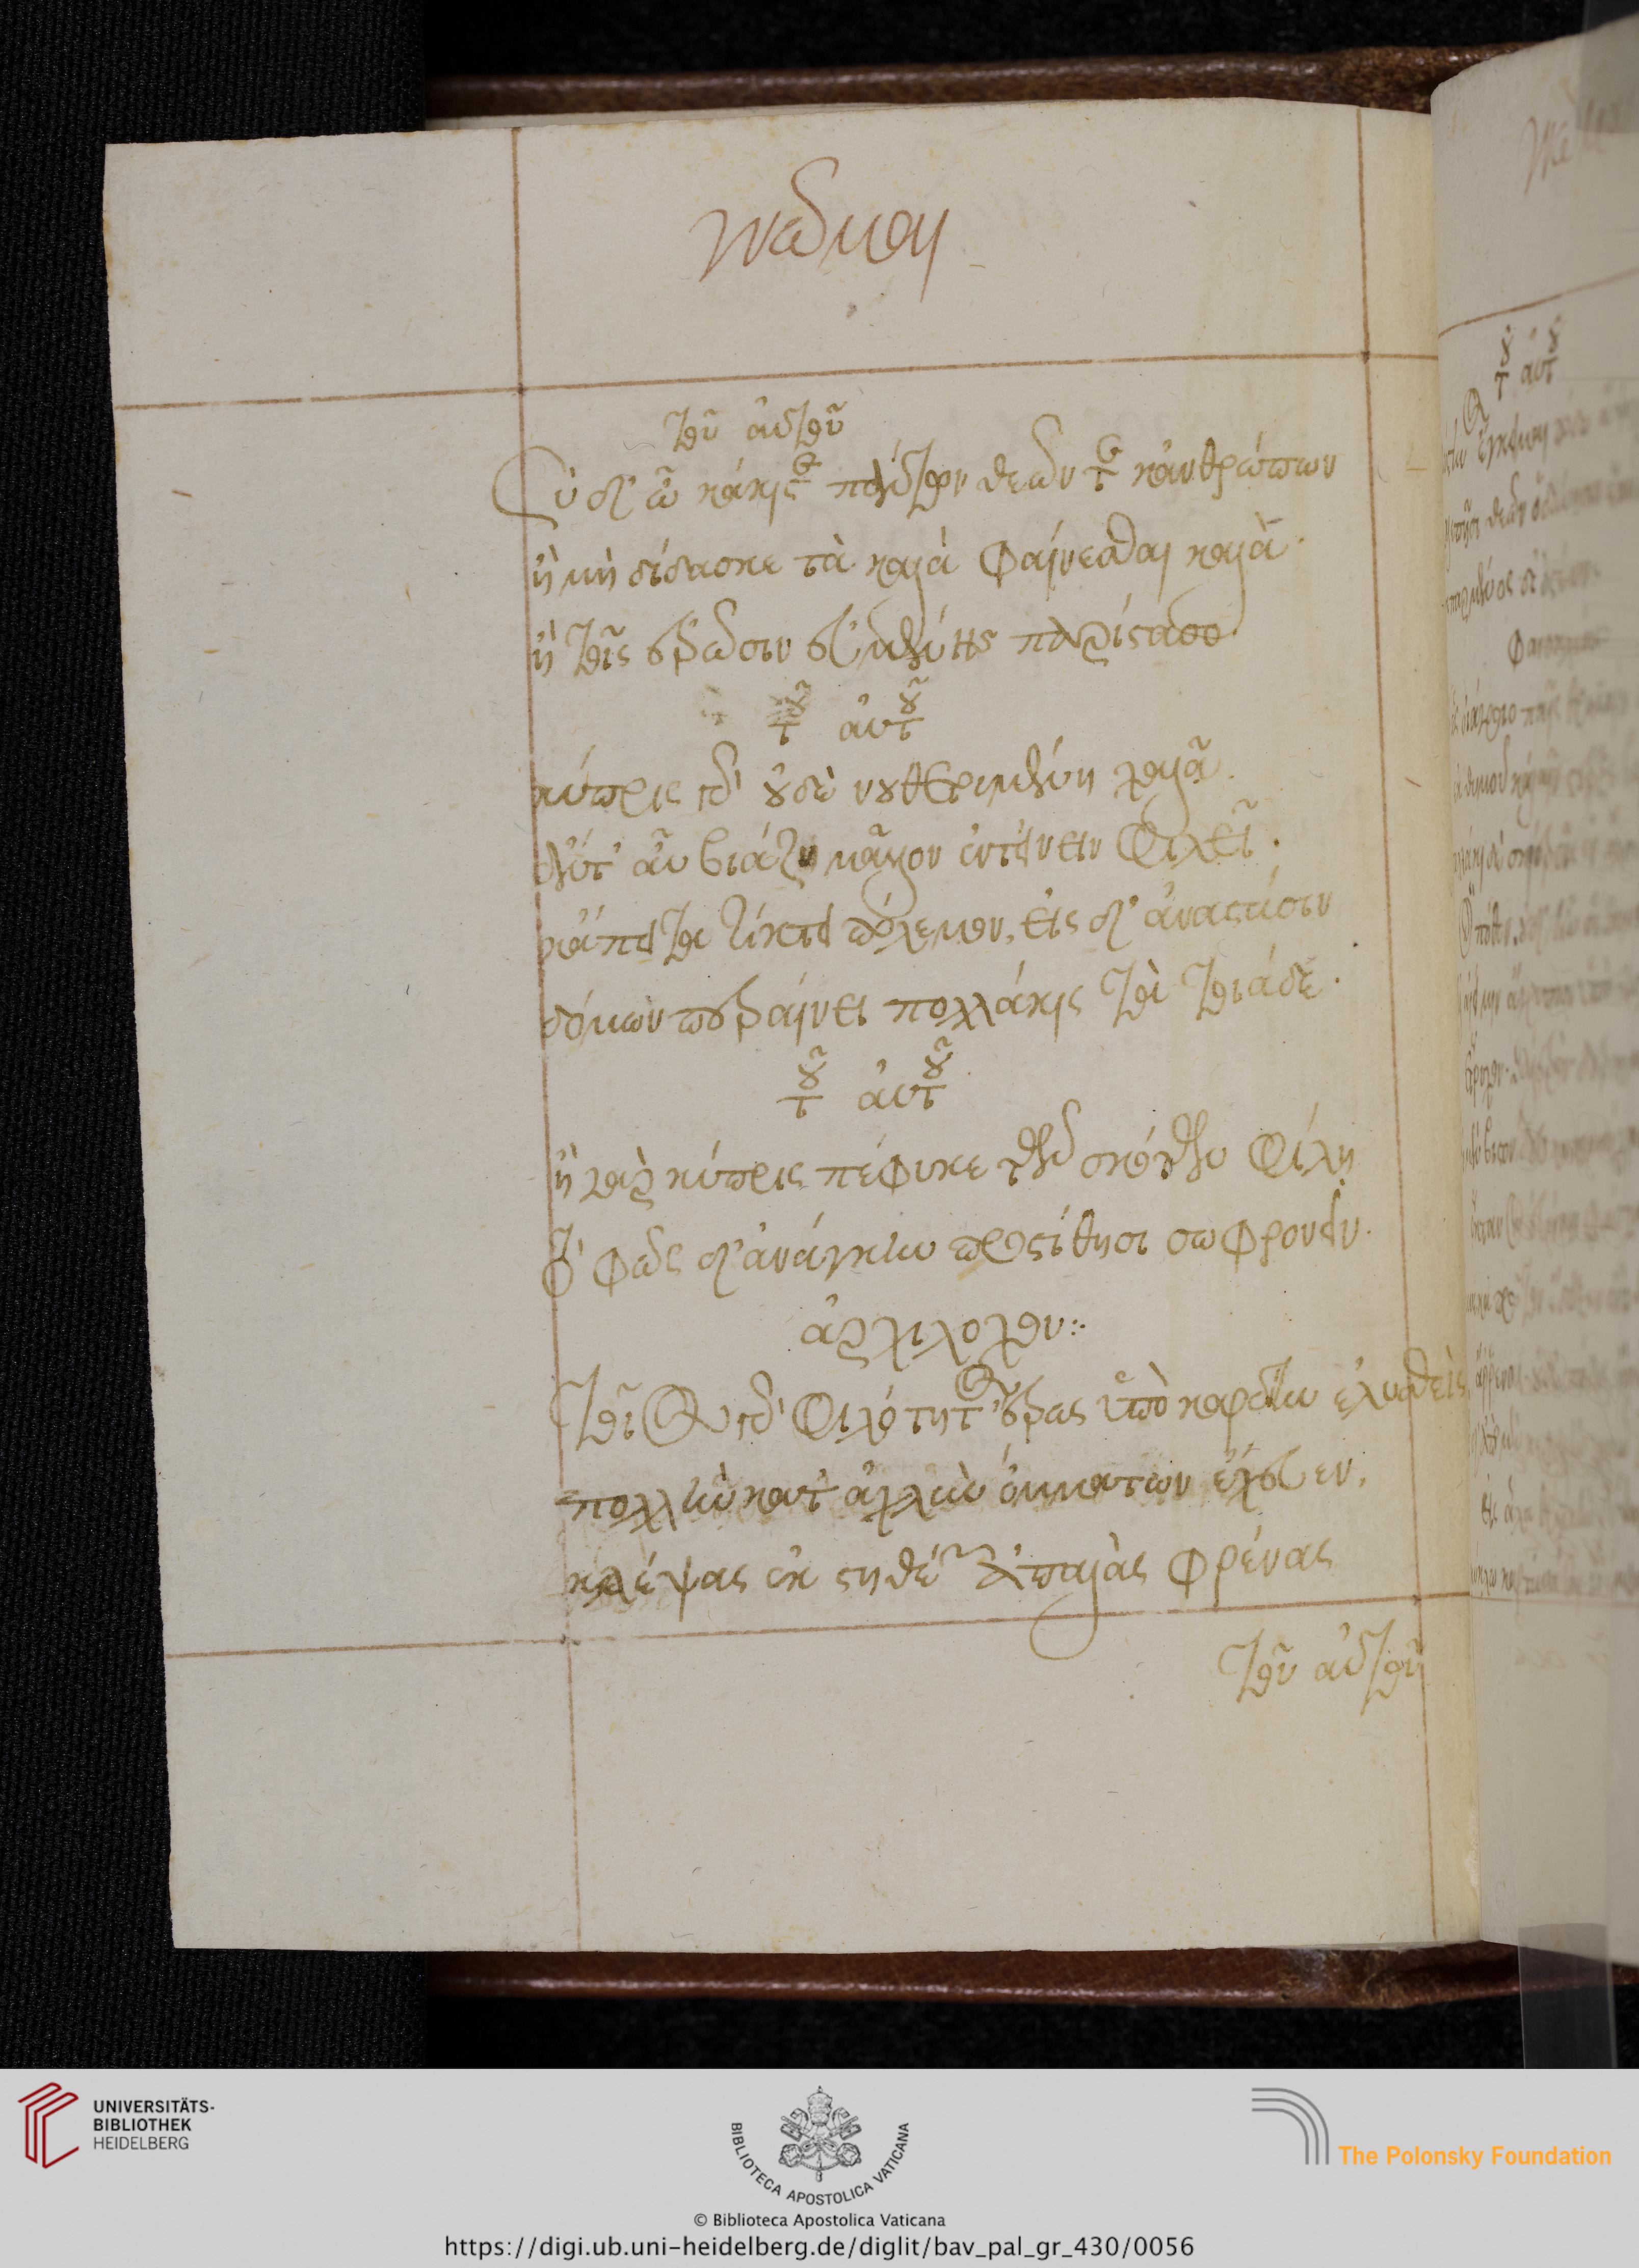 γνῶμαι
τοῦ αὐτοῦ
Σὺ δ' ὦ κάκιστε πάντων θεῶν τε κἀνθρώπων
ἢ μὴ δίδασκε τὰ καλὰ φαίνεσθαι καλὰ·
ἢ τοῖς ἐρῶσιν εὐμενὴς παρίστασο·
τοῦ αὐτοῦ
κύπρις γὰρ οὐδὲ νουθετουμένη χαλᾶ·
ἤν τ' αὖ βιάζη μᾶλλον ἐντείνειν φιλεῖ·
κἄπειτα τίκτει πόλεμον, εἰς δ' ἀνάστασιν
δόμων περαίνει πολλάκις τὰ τοιάδε·
τοῦ αὐτοῦ
ἡ γὰρ κύπρις πέφυκε τῶ σκότω φίλη
τὸ φῶς δ' ἀνάγκην προστίθησι σωφρονεῖν·
ἀρχιλόχου:
τοῖος γὰρ φιλότητος ἔρως ὑπὸ καρδίην ἐλυσθεὶς
πολλὴν κατ' ἀχλὺν ὀμμάτων ἔχευεν,
κλέψας ἐκ στηθέων ἁπαλὰς φρένας
τοῦ αὐτοῦ
UNIVERSITÄTS-
BIBLIOTHEK
HEIDELBERG
BIBLIOTECA APOSTOLICA VATICANA
The Polonsky Foundation
© Biblioteca Apostolica Vaticana
https://digi.ub.uni-heidelberg.de/diglit/bav_pal_gr_430/0056